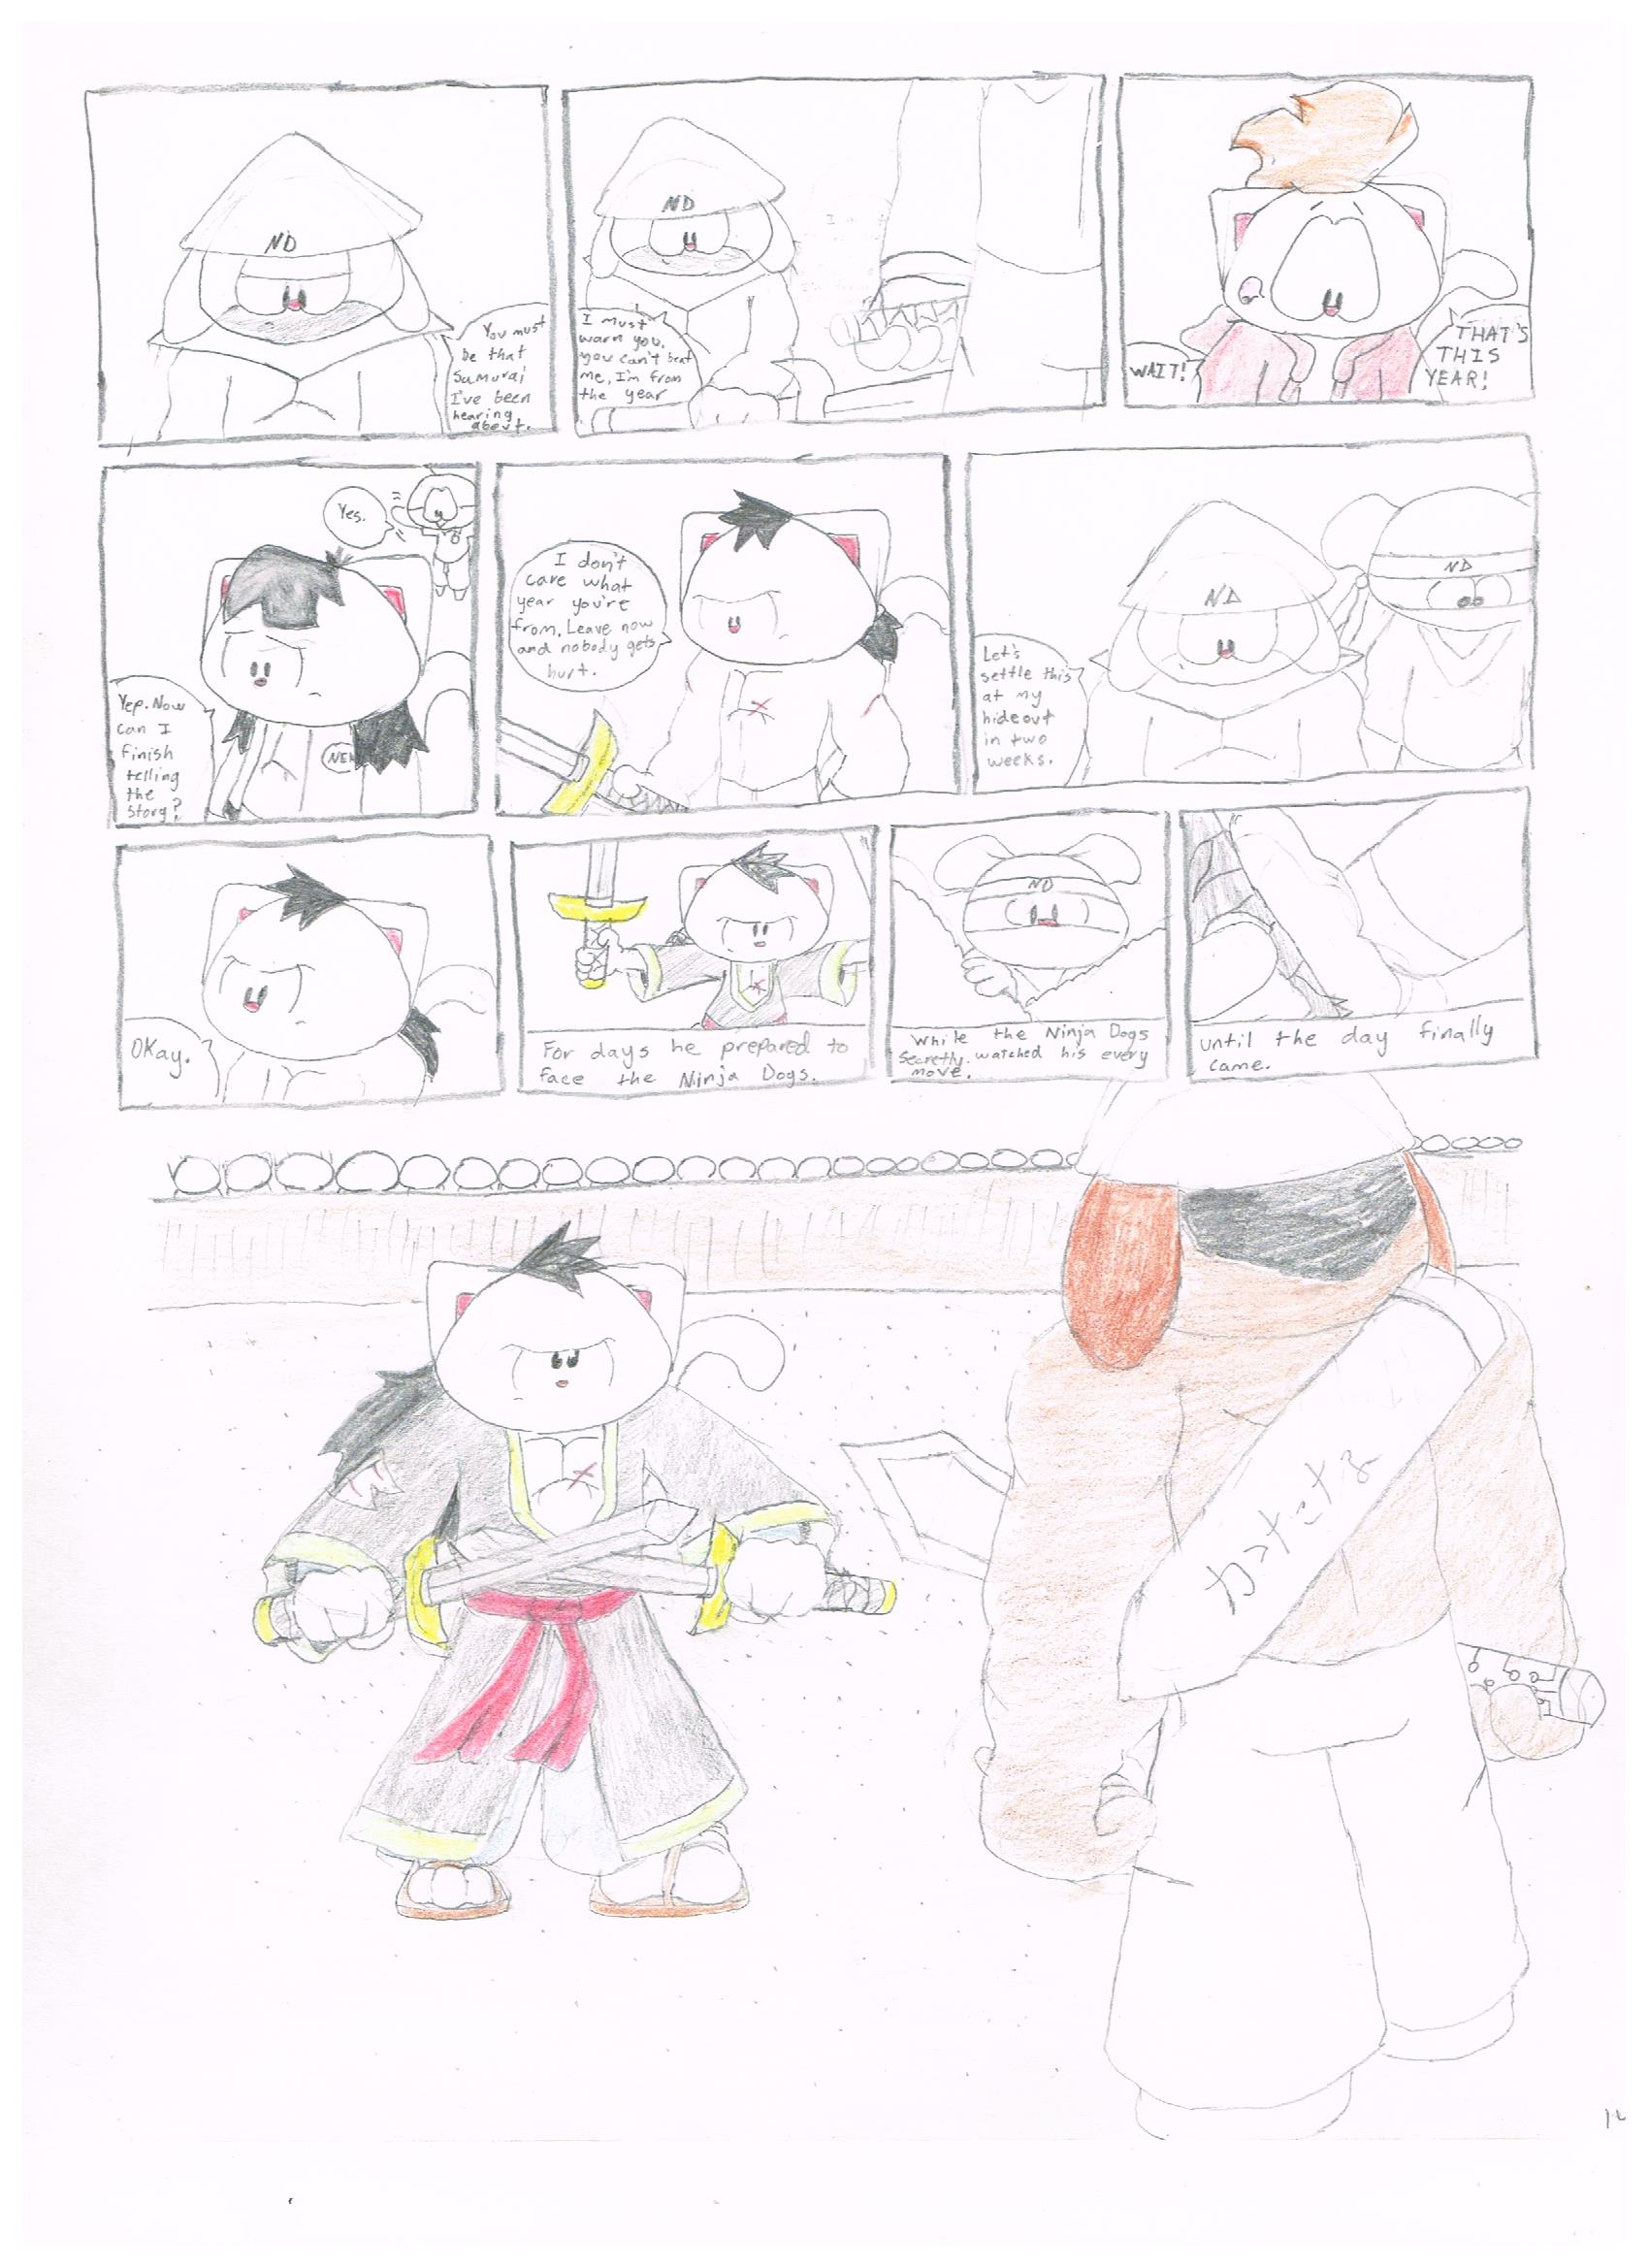 ND
You must
be that
Samurai
I've been
hearing
about.
ND
I must
warn you,
you can't beat
me, I'm from
the year
WAIT!
THAT'S
THIS
YEAR!
Yes.
Yep. Now
can I
finish
telling
the
story?
NEK
I don't
care what
year you're
from. Leave now
and nobody gets
hurt.
ND
ND
Let's
settle this
at my
hideout
in two
weeks.
Okay.
For days he prepared to
face the Ninja Dogs.
ND
While the Ninja Dogs
secretly watched his every
move.
until the day finally
came.